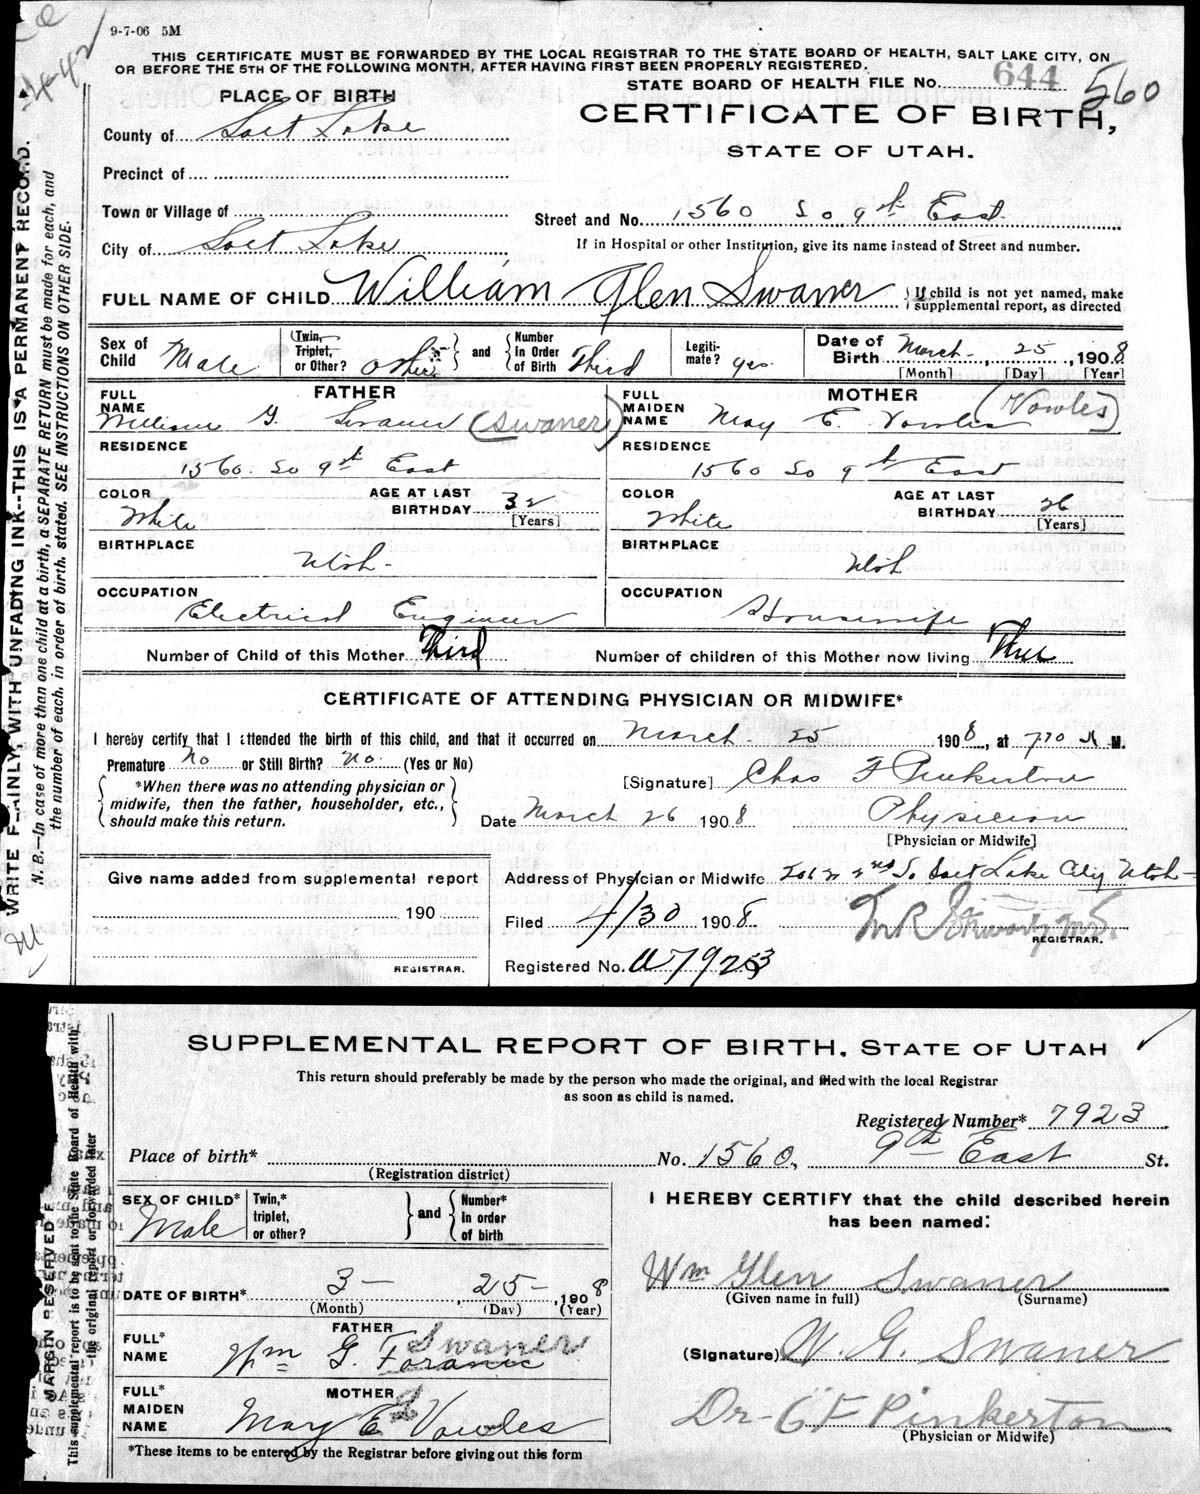 9-7-06 5M
THIS CERTIFICATE MUST BE FORWARDED BY THE LOCAL REGISTRAR TO THE STATE BOARD OF HEALTH, SALT LAKE CITY, ON
OR BEFORE THE 5TH OF THE FOLLOWING MONTH, AFTER HAVING FIRST BEEN PROPERLY REGISTERED.
STATE BOARD OF HEALTH FILE No. 644 560
PLACE OF BIRTH
CERTIFICATE OF BIRTH,
STATE OF UTAH.
County of Salt Lake
Precinct of
Town or Village of
Street and No. 1560 So 9th East
City of Salt Lake
If in Hospital or other Institution, give its name instead of Street and number.
FULL NAME OF CHILD William Glen Swaner { If child is not yet named, make
supplemental report, as directed
Sex of Child Male
Twin, Triplet, or Other? other and Number in Order of Birth Third
Legitimate? yes
Date of Birth March 25, 1908
[Month] [Day] [Year]
FATHER
FULL NAME William G. Swaner (Swaner)
MOTHER
FULL MAIDEN NAME May E. Vowles (Vowles)
RESIDENCE 1560 So 9th East
RESIDENCE 1560 So 9th East
COLOR White AGE AT LAST BIRTHDAY 32 [Years]
COLOR White AGE AT LAST BIRTHDAY 26 [Years]
BIRTHPLACE Utah
BIRTHPLACE Utah
OCCUPATION Electrical Engineer
OCCUPATION Housewife
Number of Child of this Mother Third Number of children of this Mother now living Three
CERTIFICATE OF ATTENDING PHYSICIAN OR MIDWIFE*
I hereby certify that I attended the birth of this child, and that it occurred on March 25 1908, at 7.10 A M.
Premature No or Still Birth? No (Yes or No)
[Signature] Chas F Pinkerton
*When there was no attending physician or
midwife, then the father, householder, etc.,
should make this return.
Date March 26 1908 Physician
[Physician or Midwife]
Give name added from supplemental report
190
REGISTRAR.
Address of Physician or Midwife 2nd So Salt Lake City Utah
Filed 4/30 1908
REGISTRAR.
Registered No. 7923
WRITE PLAINLY, WITH UNFADING INK--THIS IS A PERMANENT RECORD.
N. B.—In case of more than one child at a birth, a SEPARATE RETURN must be made for each, and
the number of each, in order of birth, stated. SEE INSTRUCTIONS ON OTHER SIDE.
SUPPLEMENTAL REPORT OF BIRTH, STATE OF UTAH
This return should preferably be made by the person who made the original, and filed with the local Registrar
as soon as child is named.
Registered Number* 7923
Place of birth* No. 1560, 9th East St.
(Registration district)
SEX OF CHILD* Male
Twin,* triplet, or other? and Number* in order of birth
I HEREBY CERTIFY that the child described herein
has been named:
DATE OF BIRTH* 3 - 25 - 1908
(Month) (Day) (Year)
Wm Glen Swaner
(Given name in full) (Surname)
FATHER
FULL* NAME Wm G. Swaner
(Signature) W. G. Swaner
MOTHER
FULL* MAIDEN NAME May E Vowles
Dr- C F Pinkerton
(Physician or Midwife)
*These items to be entered by the Registrar before giving out this form
MARGIN RESERVED F
This supplemental report is to be sent to the State Board of Health with
the original report or forwarded later